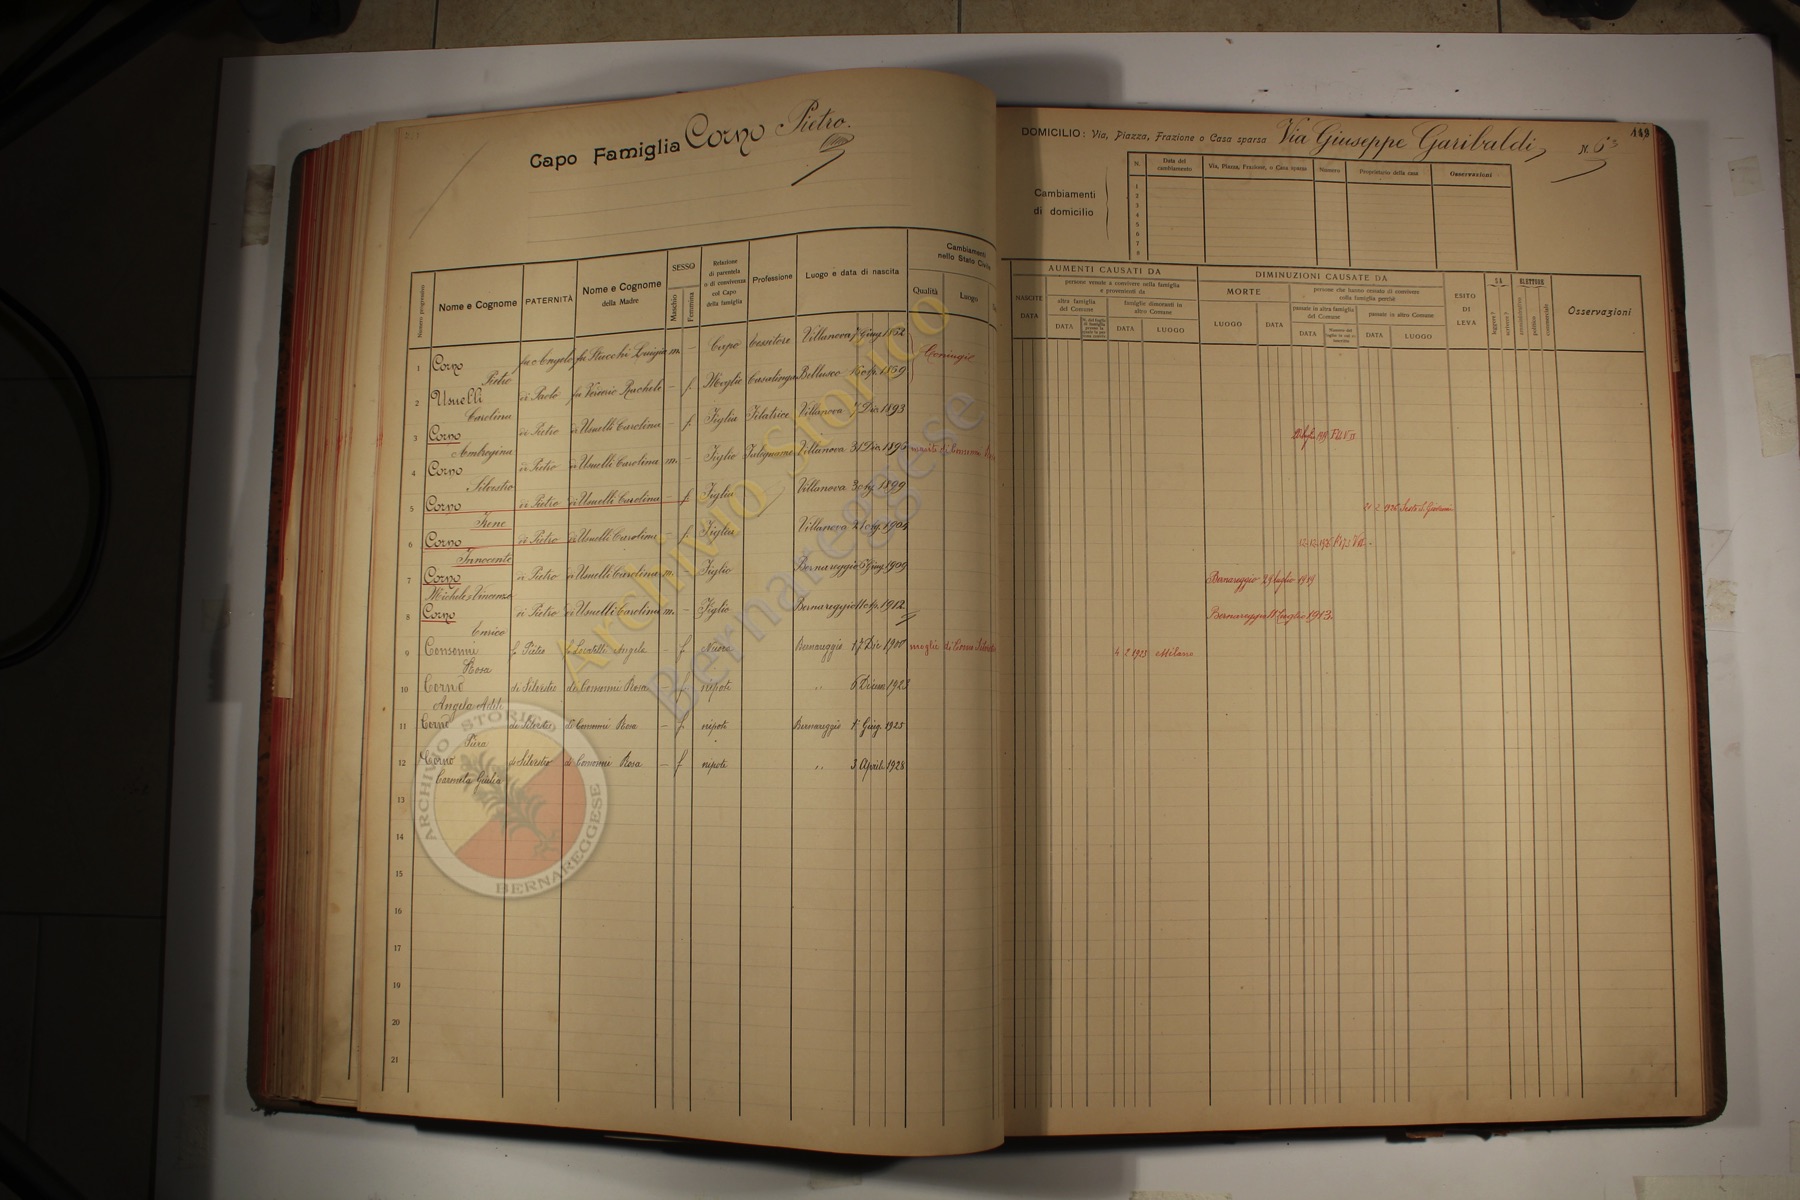 Capo Famiglia Corno Pietro.
Numero progressivo
Nome e Cognome
PATERNITÀ
Nome e Cognome
della Madre
SESSO
Maschio
Femmina
Relazione
di parentela
o di convivenza
col Capo
della famiglia
Professione
Luogo e data di nascita
Cambiamenti
nello Stato Civile
Qualità
Luogo
1 Corno Pietro fu Angelo fu Stucchi Luigia m. – Capo Tessitore Villanova 7 Giug. 1852 Coniugi
2 Usuelli Carolina di Paolo fu Rachele – f. Moglie Casalinga Bellusco 1859
3 Corno Ambrogina di Pietro di Usuelli Carolina – f. Figlia Filatrice Villanova 7 Dic. 1893
4 Corno Silvestro di Pietro di Usuelli Carolina m. – Figlio Falegname Villanova 31 Dic. 1896 marito di Consonni Rosa
5 Corno Irene di Pietro di Usuelli Carolina – f. Figlia Villanova 1899
6 Corno Innocente di Pietro di Usuelli Carolina – f. Figlia Villanova 1904
7 Corno Michele Vincenzo di Pietro di Usuelli Carolina m. – Figlio Bernareggio Giug. 1909
8 Corno Enrico di Pietro di Usuelli Carolina m. – Figlio Bernareggio 1912
9 Consonni Rosa fu Pietro fu Locatelli Angela – f Nuora Bernareggio 17 Dic. 1900 moglie di Corno Silvestro
10 Corno Angela di Silvestro di Consonni Rosa – f nipote " 6 Dicem 1923
11 Corno Piera di Silvestro di Consonni Rosa – f nipote Bernareggio Giug. 1925
12 Corno Carmela Giulia di Silvestro di Consonni Rosa – f nipote " 3 Aprile 1928
13
14
15
16
17
18
19
20
21
149
DOMICILIO: Via, Piazza, Frazione o Casa sparsa Via Giuseppe Garibaldi N. 63
Cambiamenti
di domicilio
N.
Data del
cambiamento
Via, Piazza, Frazione, o Casa sparsa
Numero
Proprietario della casa
Osservazioni
1
2
3
4
5
6
7
8
AUMENTI CAUSATI DA
NASCITE
DATA
persone venute a convivere nella famiglia
e provenienti da
altra famiglia
del Comune
DATA
famiglie dimoranti in
altro Comune
DATA
LUOGO
DIMINUZIONI CAUSATE DA
MORTE
LUOGO
DATA
persone che hanno cessato di convivere
colla famiglia perchè
passate in altra famiglia
del Comune
DATA
passate in altro Comune
DATA
LUOGO
ESITO
DI
LEVA
SA
leggere?
scrivere?
ELETTORE
amministrativo
politico
commerciale
Osservazioni
21 2 1926 Sesto S. Giovanni
Bernareggio 29 luglio 1919
Bernareggio 11 Luglio 1913.
4 2 1925 Milano
Archivio Storico
Bernareggese
ARCHIVIO STORICO
BERNAREGGESE